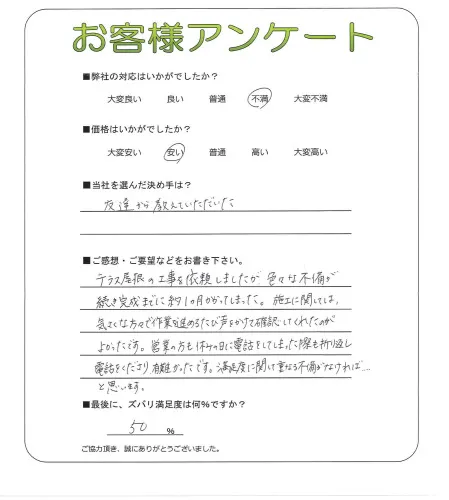 お客様アンケート
■弊社の対応はいかがでしたか？
大変良い 良い 普通 不満 大変不満
■価格はいかがでしたか？
大変安い 安い 普通 高い 大変高い
■当社を選んだ決め手は？
友達から教えていただいた
■ご感想・ご要望などをお書き下さい。
テラス屋根の工事を依頼しましたが、色々な不備が
続き完成までに約1ヶ月かかってしまった。施工に関しては、
気さくな方々で作業が進めるたび声をかけて確認してくれたのが
よかったです。営業の方も休みの日に電話をしてしまった際も折り返し
電話をくださり有難かったです。満足度に関して重なる不備がなければ…
と思います。
■最後に、ズバリ満足度は何％ですか？
50 %
ご協力頂き、誠にありがとうございました。